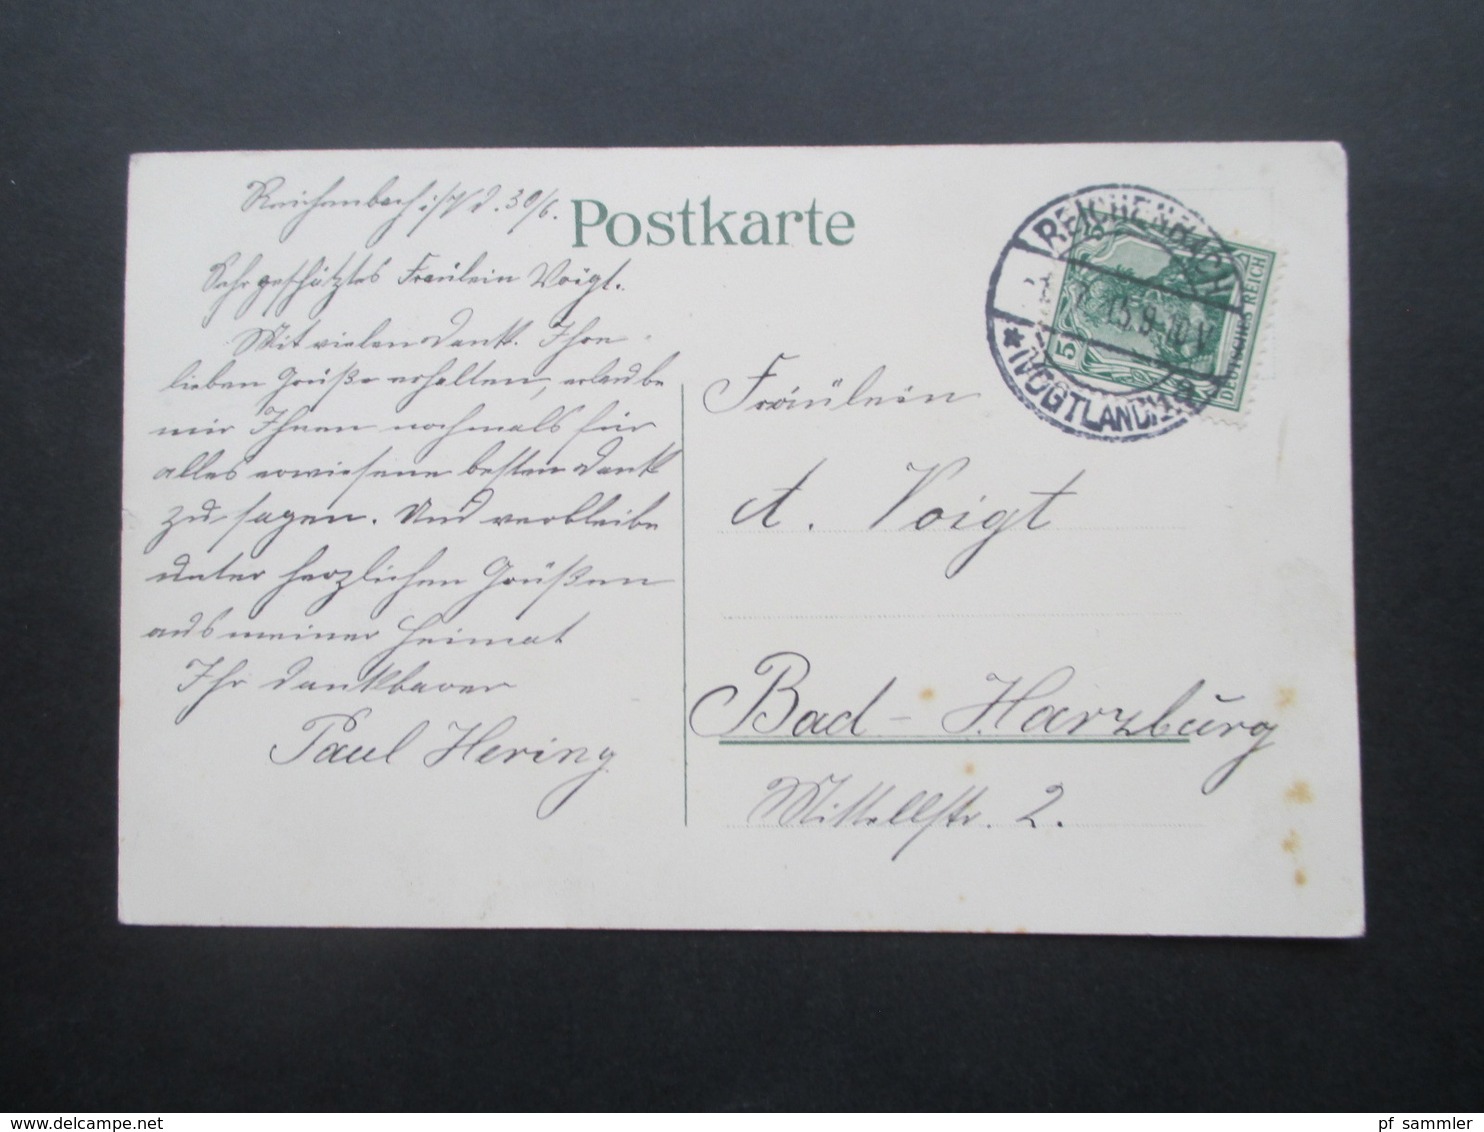 Reichenbach i/V d. 30/6.
Postkarte
Sehrgeschätztes Fräulein Voigt.
Mit vielen Dank Ihre
lieben Grüße erhalten, erlaube
mir Ihnen nochmals für
alles erwiesene besten Dank
zu sagen. Und verbleibe
unter herzlichen Grüßen
aus meiner Heimat
Ihr dankbarer
Paul Hering
REICHENBACH
7. 13. 9-10 V
* (VOGTLAND) 1a
5
DEUTSCHES REICH
Fräulein
A. Voigt
Bad-Harzburg
Mittellstr. 2.
pf_sammler
www.delcampe.net